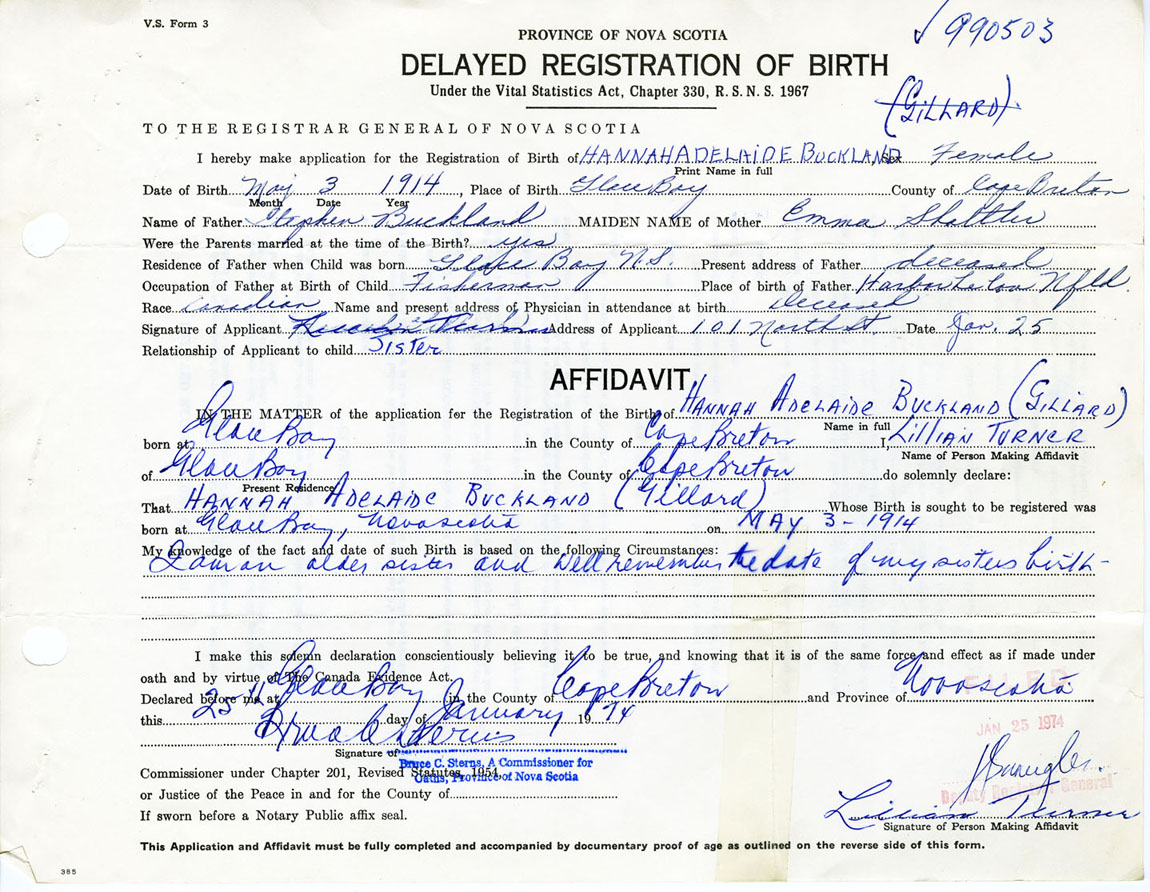 V.S. Form 3
√ 990503
PROVINCE OF NOVA SCOTIA
DELAYED REGISTRATION OF BIRTH
Under the Vital Statistics Act, Chapter 330, R. S. N. S. 1967
(GILLARD)
TO THE REGISTRAR GENERAL OF NOVA SCOTIA
I hereby make application for the Registration of Birth of HANNAH ADELAIDE BUCKLAND Sex Female
Print Name in full
Date of Birth May 3 1914, Place of Birth Glace Bay County of Cape Breton
Month Date Year
Name of Father Stephen Buckland MAIDEN NAME of Mother Emma
Were the Parents married at the time of the Birth? yes
Residence of Father when Child was born Glace Bay N.S. Present address of Father deceased
Occupation of Father at Birth of Child Fisherman Place of birth of Father Harbor Nfld.
Race Canadian Name and present address of Physician in attendance at birth deceased
Signature of Applicant Address of Applicant 101 North St. Date Jan. 25
Relationship of Applicant to child Sister
AFFIDAVIT
IN THE MATTER of the application for the Registration of the Birth of HANNAH ADELAIDE BUCKLAND (GILLARD)
Name in full
born at Glace Bay in the County of Cape Breton I, LILLIAN TURNER
Name of Person Making Affidavit
of Glace Bay in the County of Cape Breton do solemnly declare:
Present Residence
That HANNAH ADELAIDE BUCKLAND (Gillard) Whose Birth is sought to be registered was
born at Glace Bay, Nova Scotia on MAY 3-1914
My knowledge of the fact and date of such Birth is based on the following Circumstances:
I am an older sister and well remember the date of my sisters birth-
I make this solemn declaration conscientiously believing it to be true, and knowing that it is of the same force and effect as if made under
oath and by virtue of The Canada Evidence Act.
Declared before me at Glace Bay in the County of Cape Breton and Province of Nova Scotia
this 25th day of January 1974
FILED
JAN 25 1974
Bruce C Sterns
Signature of
Bruce C. Sterns, A Commissioner for
Oaths, Province of Nova Scotia
Commissioner under Chapter 201, Revised Statutes, 1954,
Deputy Registrar General
or Justice of the Peace in and for the County of
Lillian Turner
If sworn before a Notary Public affix seal.
Signature of Person Making Affidavit
This Application and Affidavit must be fully completed and accompanied by documentary proof of age as outlined on the reverse side of this form.
385